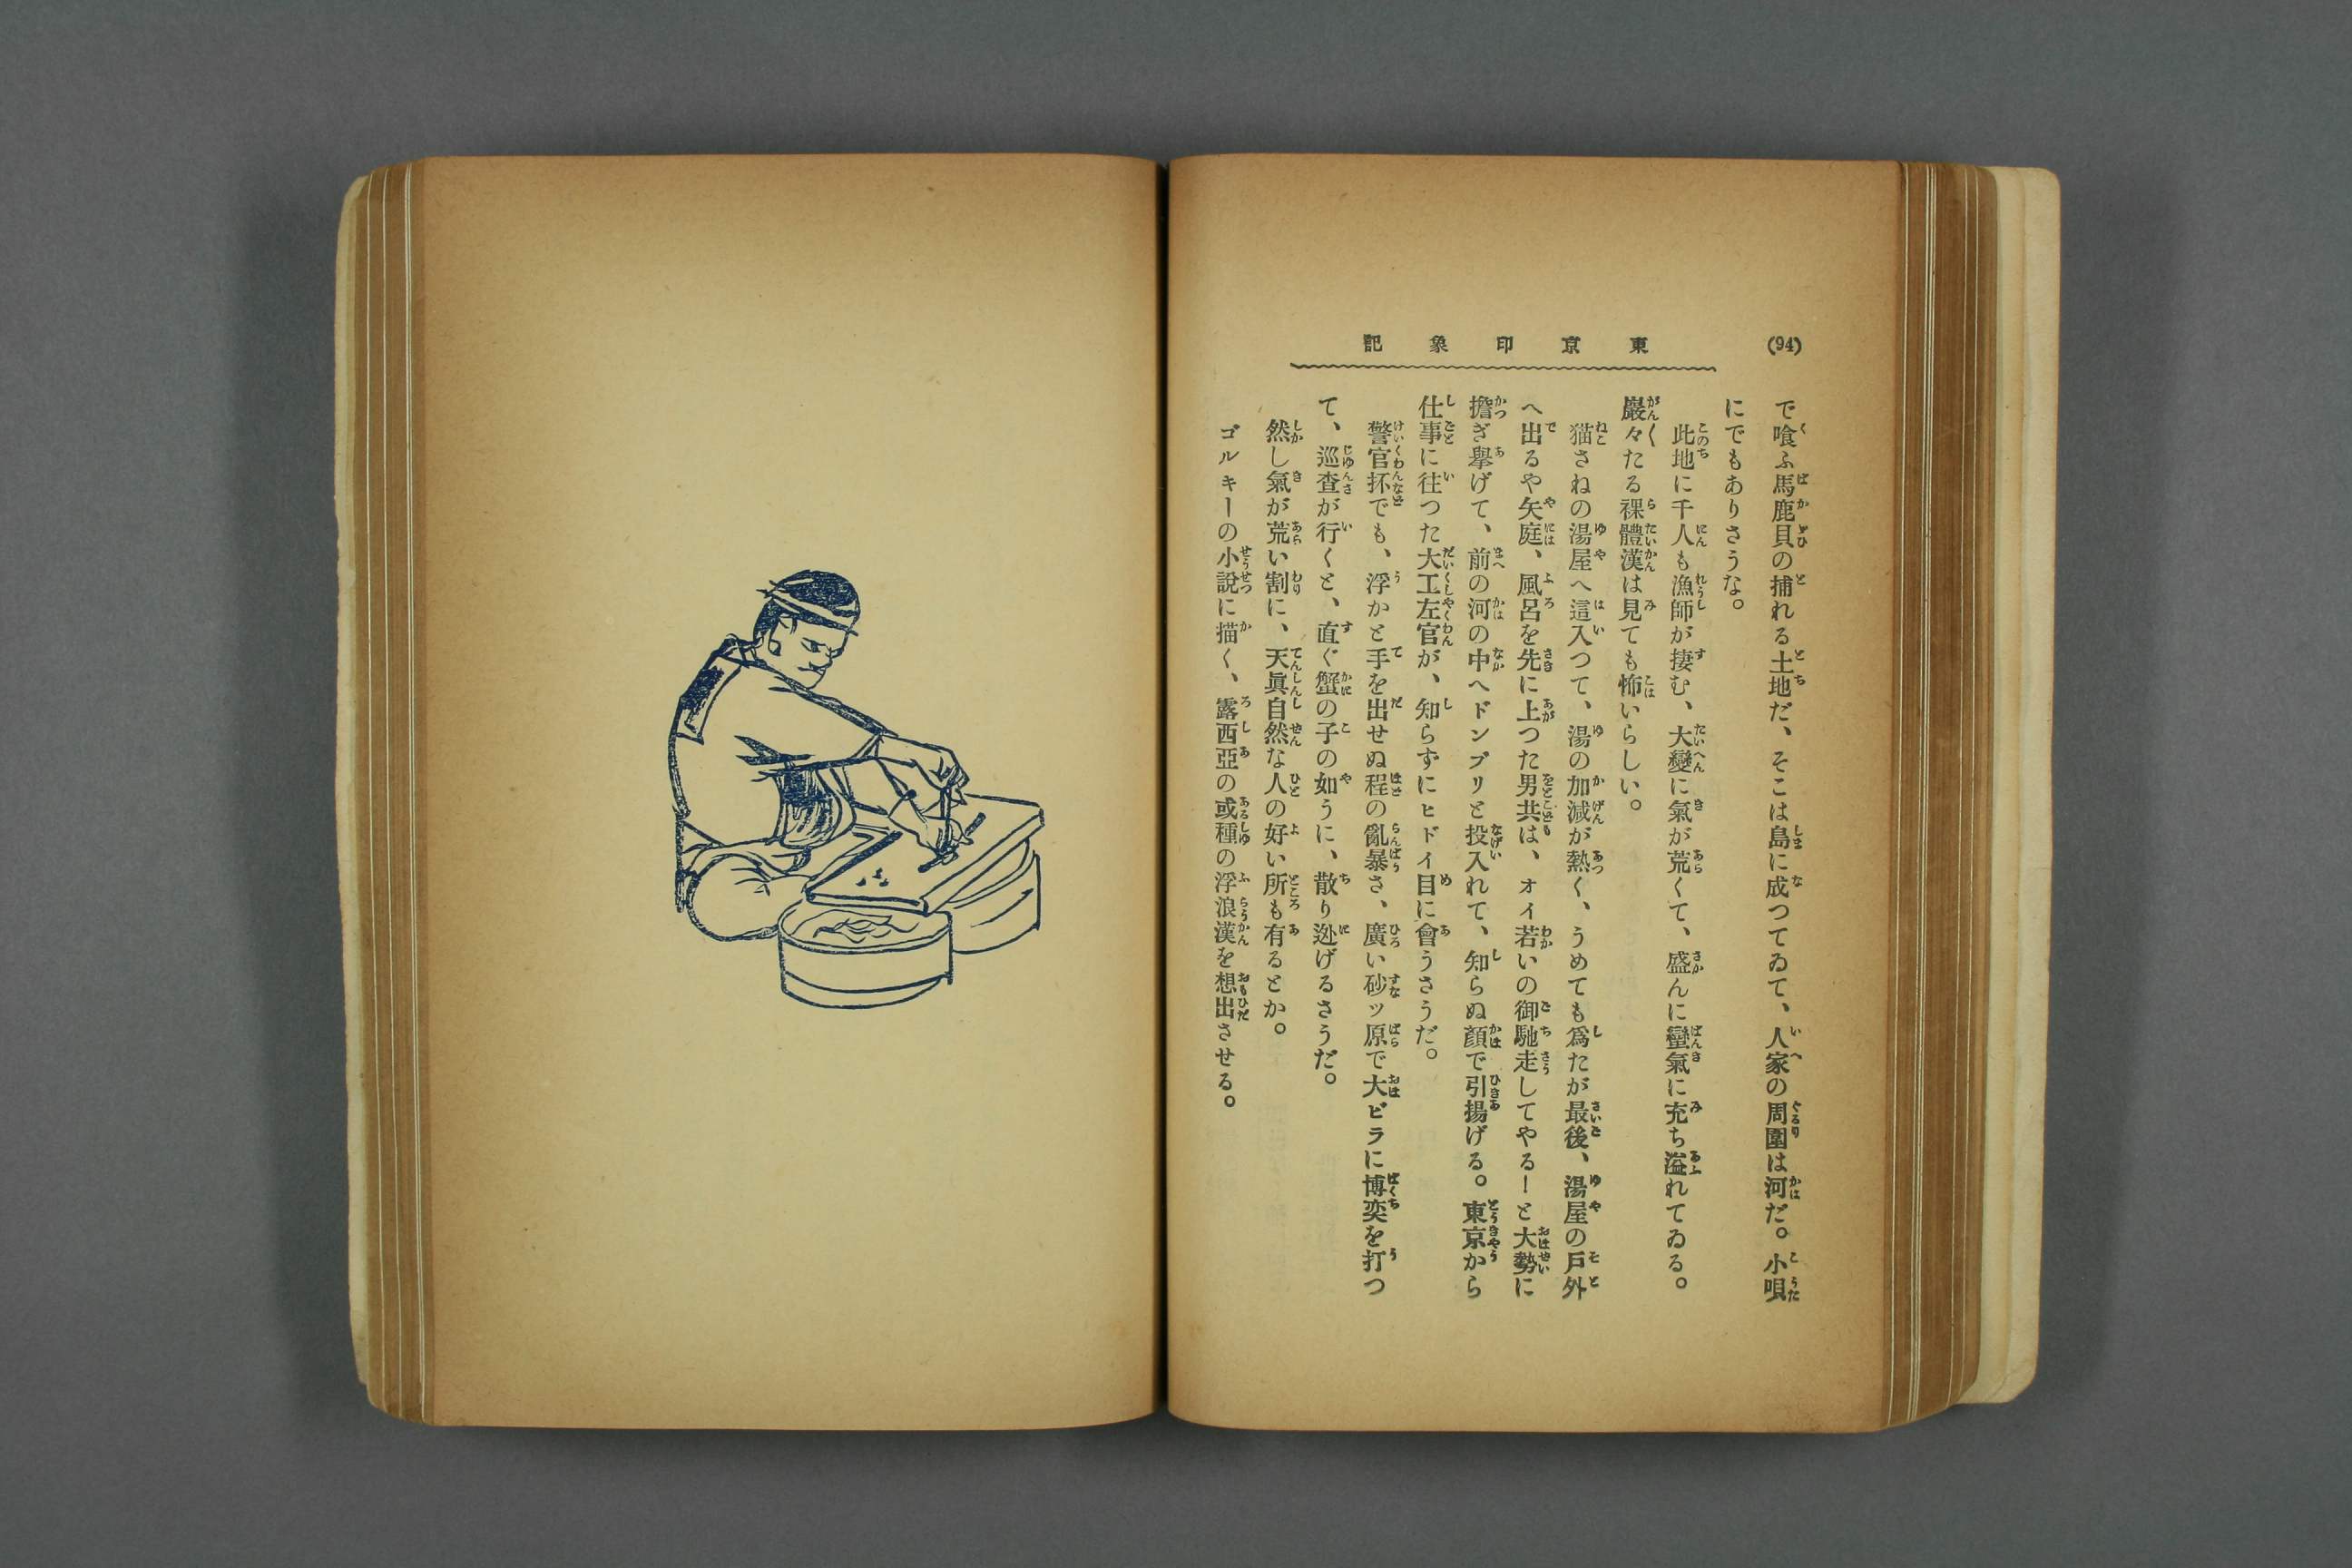 (94)
東京印象記
で喰ふ馬鹿貝の捕れる土地だ、そこは島に成つてゐて、人家の周圍は河だ。小唄
にでもありさうな。
此地に千人も漁師が捿む、大變に氣が荒くて、盛んに蠻氣に充ち溢れてゐる。
巖々たる裸體漢は見ても怖いらしい。
猫さねの湯屋へ這入つて、湯の加減が熱く、うめても爲たが最後、湯屋の戸外
へ出るや矢庭、風呂を先に上つた男共は、オイ若いの御馳走してやる！と大勢に
擔ぎ擧げて、前の河の中へドンブリと投入れて、知らぬ顏で引揚げる。東京から
仕事に往つた大工左官が、知らずにヒドイ目に會うさうだ。
警官抔でも、浮かと手を出せぬ程の亂暴さ、廣い砂ッ原で大ビラに博奕を打つ
て、巡査が行くと、直ぐ蟹の子の如うに、散り迯げるさうだ。
然し氣が荒い割に、天眞自然な人の好い所も有るとか。
ゴルキーの小說に描く、露西亞の或種の浮浪漢を想出させる。